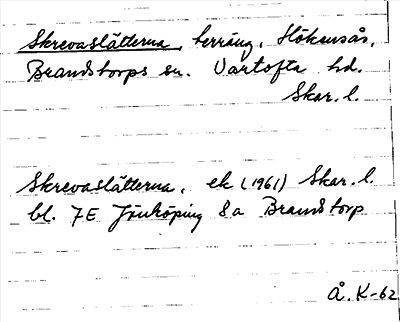 Skrevaslätterna, terräng, Hökensås,
Brandstorps sn. Vartofta hd.
Skar. l.
Skrevaslätterna, ek (1961) Skar. l.
bl. 7E Jönköping 8a Brandstorp
Å. K-62